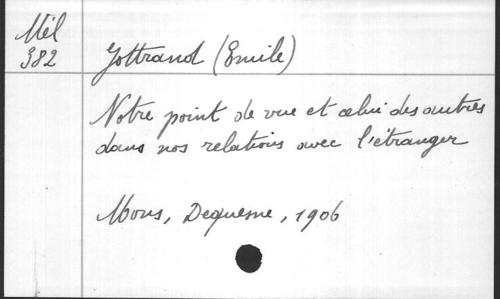 Mél
382
Jottrand (Emile)
Notre point de vue et celui des autres
dans nos relations avec l'étranger
Mons, Dequesne, 1906